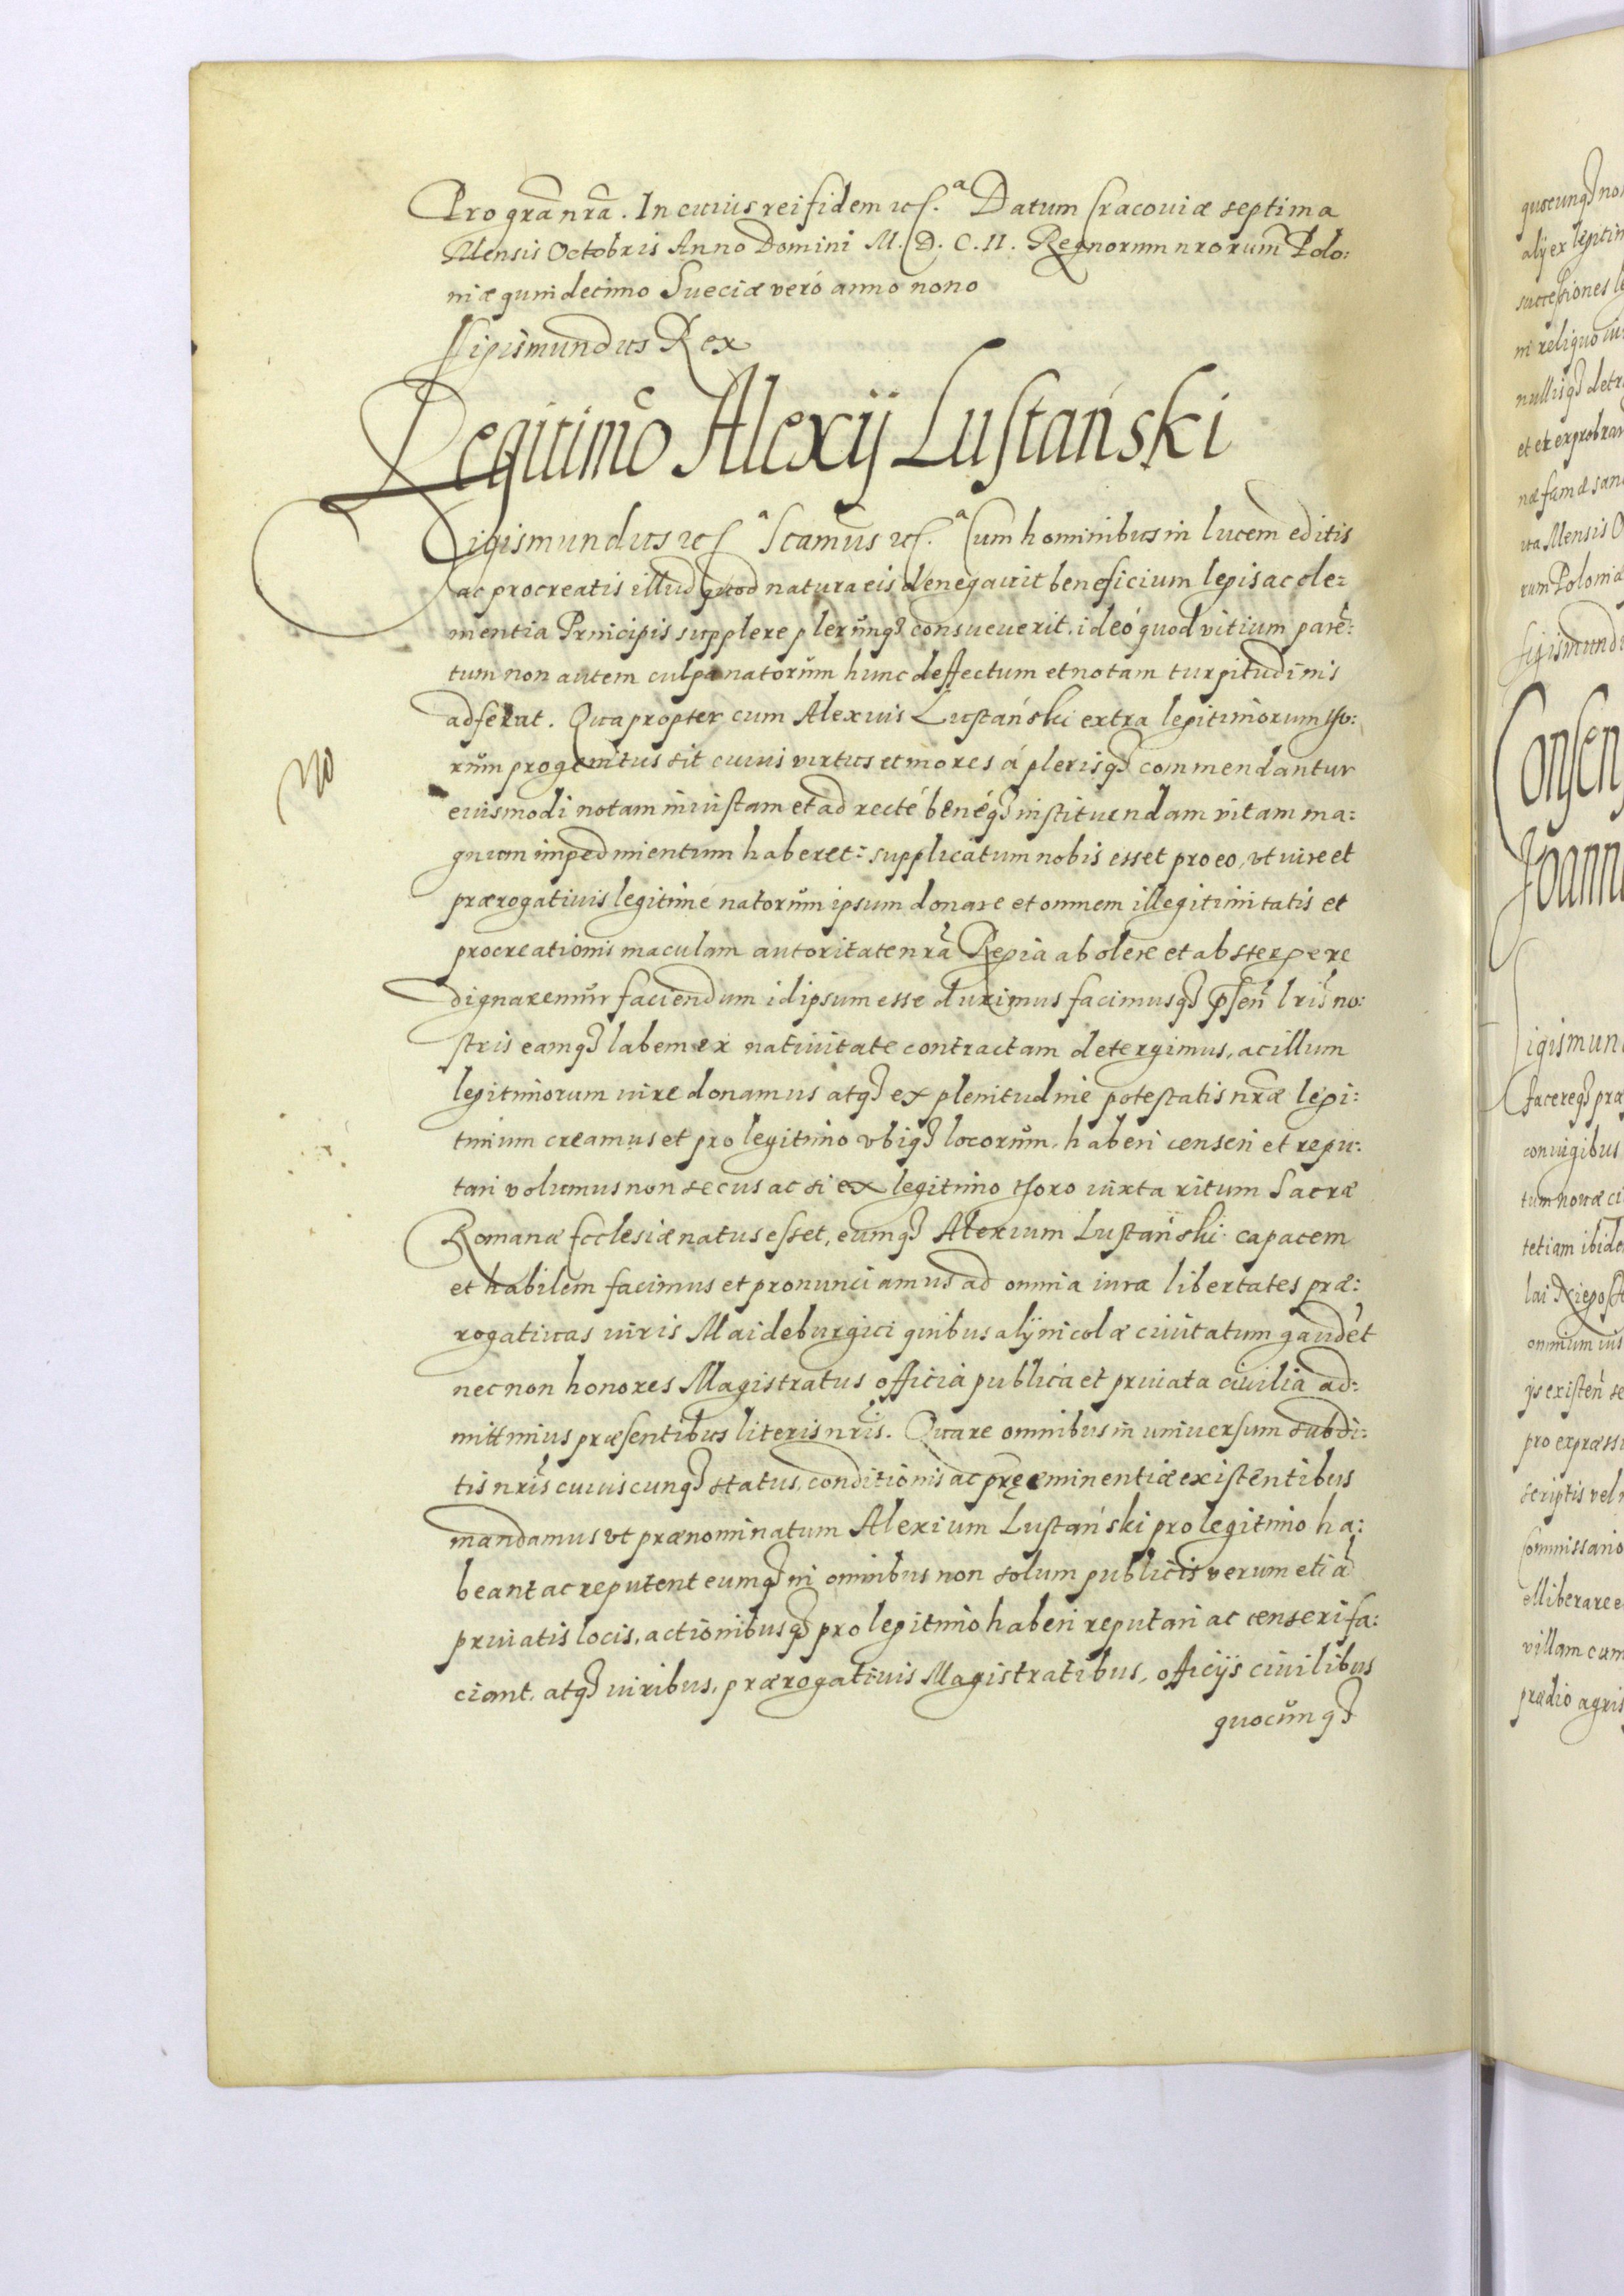 Pro grã nrã. In cuius rei fidem etc.ª Datum Cracouiæ septima
Mensis Octobris Anno Domini M. D. C. II. Regnorum nrorum Polo:
niæ quindecimo Sueciæ veró anno nono
Sigismundus Rex
Legitimõ Alexij Lustański
Sigismundus etc.ª Scamus etc.ª Cum hominibus in lucem editis
ac procreatis illud quod natura eis denegauit beneficium legis ac cle:
mentia Principis supplere plerunq3 consueuerit, ideó quod vitium parẽ:
tum non autem culpa natorum hunc deffectum et notam turpitudinis
adferat. Quapropter cum Alexius Lustański extra legitimorum tho:
rum progenitus sit cuius virtus et mores á plerisq3 commendantur
eiusmodi notam iniustam et ad recté bené q3 instituendam vitam ma:
gnum impedimentum haberet: supplicatum nobis esset pro eo, vt iure et
prærogatiuis legitimé natorum ipsum donare et omnem illegitimitatis et
procreationis maculam autoritate nrã Regia abolere et abstergere
dignaremur faciendum id ipsum esse duximus facimusq3 pñsen lris no:
stris eamq3 labem ex natiuitate contractam detergimus, ac illum
legitimorum iure donamus atq3 ex plenitudine potestatis nræ legi:
timum creamus et pro legitimo vbiq3 locorum, haberi censeri et repu:
tari volumus non secus ac si ex legitimo thoro iuxta ritum Sacræ
Romanæ Ecclesiæ natus esset, eumq3 Alexium Lustański capacem
et habilem facimus et pronunciamus ad omnia iura libertates præ:
rogatiuas iuris Maideburgici quibus alij incolæ ciuitatum gaudẽt
nec non honores Magistratus officia publica et priuata ciuilia ad:
mittimus præsentibus literis nris. Quare omnibus in uniuersum subdi:
tis nris cuiuscunq3 status, conditionis ac præeminentiæ existentibus
mandamus vt prænominatum Alexium Lustański pro legitimo ha:
beant ac reputent eumq3 in omnibus non solum publicis verum etiã
priuatis locis, actionibusq3 pro legitimo haberi reputari ac censeri fa:
ciant, atq3 iuribus, prærogatiuis Magistratibus, officijs ciuilibus
quocunq3